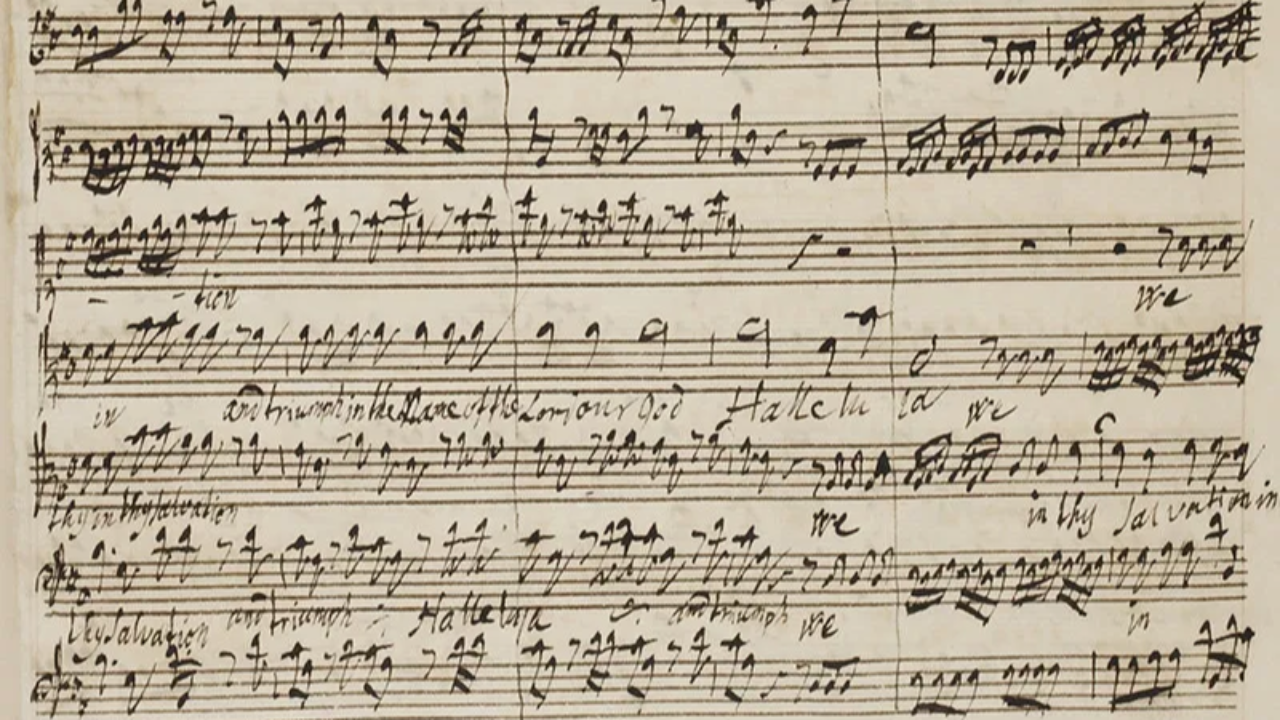 - - tion we
in and triumph in the Name of the Loriour God Hallelu ia we
thy in thy salvation we in thy Salvation in
thy salvation and triumph Halleluja and triumph we in